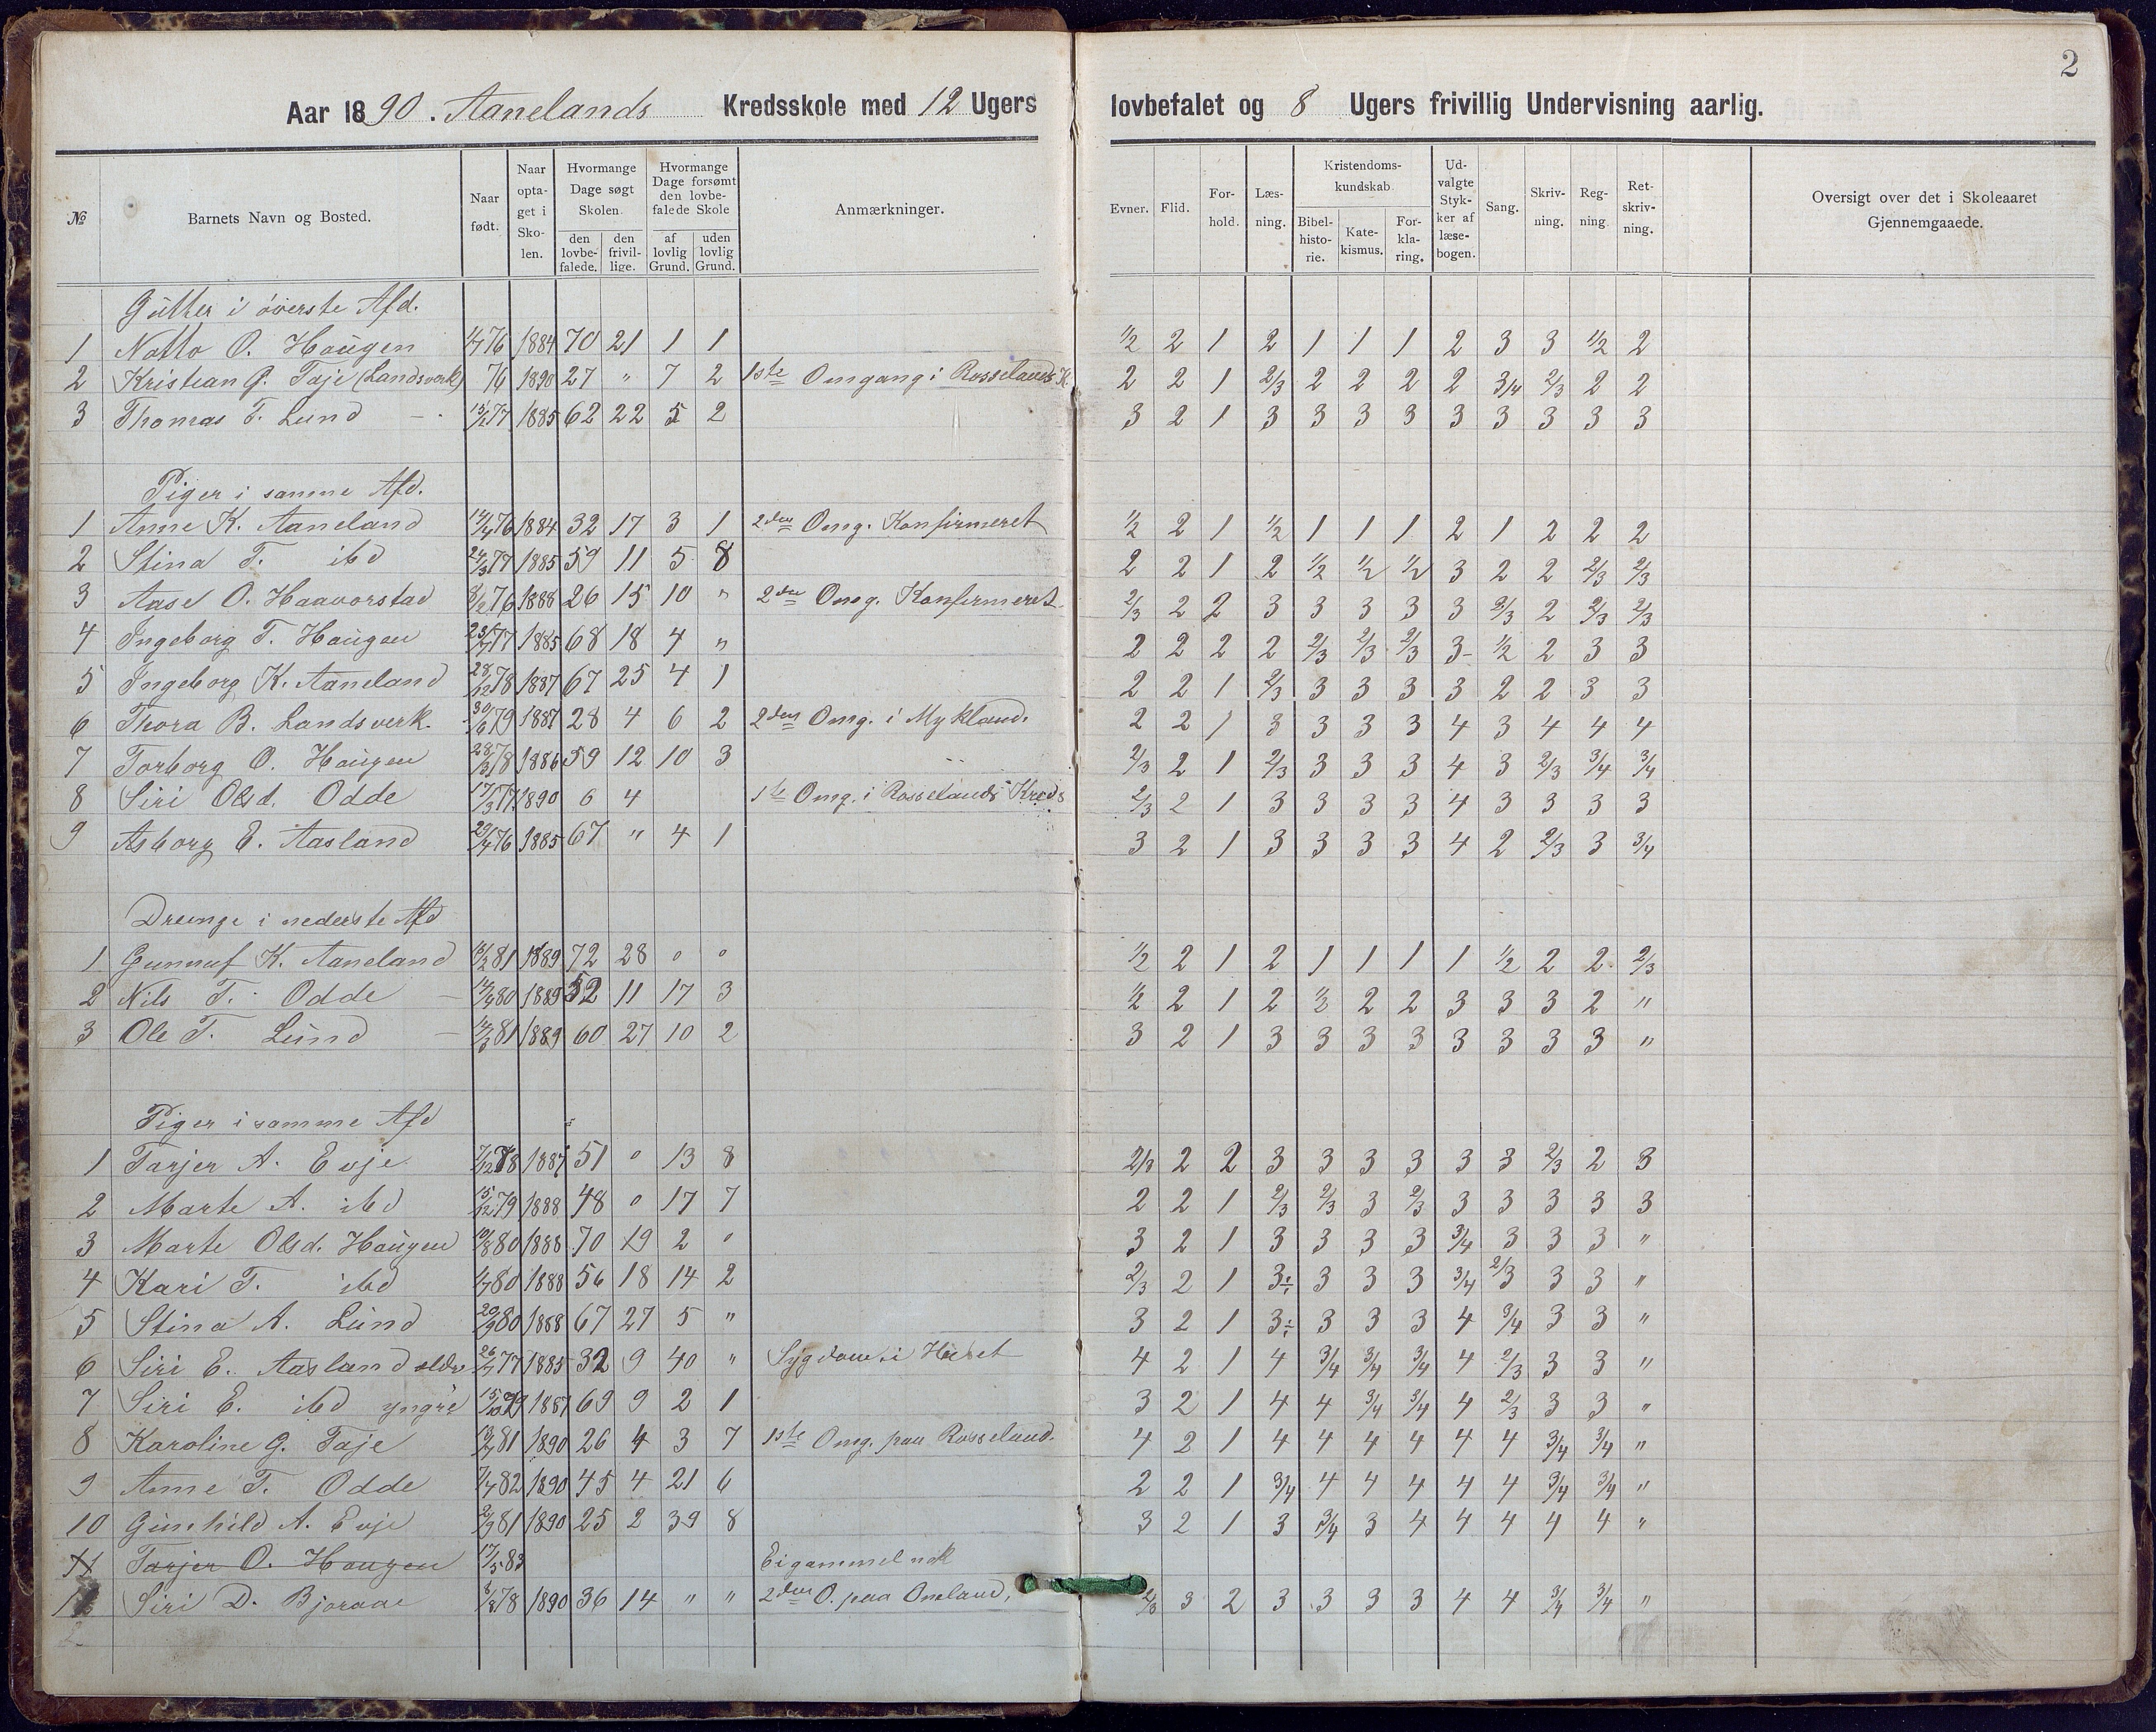 2
Aar 1890. Aanelands Kredsskole med 12 Ugers lovbefalet og 8 Ugers frivillig Undervisning aarlig.
№ | Barnets Navn og Bosted. | Naar født. | Naar optaget i Skolen. | Hvormange Dage søgt Skolen. den lovbefalede. | den frivillige. | Hvormange Dage forsømt den lovbefalede Skole af lovlig Grund. | uden lovlig Grund. | Anmærkninger. | Evner. | Flid. | Forhold. | Læsning. | Kristendomskundskab. Bibelhistorie. | Katekismus. | Forklaring. | Udvalgte Stykker af læsebogen. | Sang. | Skrivning. | Regning. | Retskrivning. | Oversigt over det i Skoleaaret Gjennemgaaede.
Gutter i överste Afd.
1 Notto O. Haugen 76 1884 70 21 1 1 ½ 2 1 2 1 1 1 2 3 3 ½ 2
2 Kristian G. Taje (Landsverk) 76 1890 27 " 7 2 1ste Omgang i Rosselands K. 2 2 1 2/3 2 2 2 2 3/4 2/3 2 2
3 Thomas T. Lund 77 1885 62 22 5 2 3 2 1 3 3 3 3 3 3 3 3 3
Piger i samme Afd.
1 Anne K. Aaneland 14/4 76 1884 32 17 3 1 2den Omg. Konfirmeret ½ 2 1 ½ 1 1 1 2 1 2 2 2
2 Stina T. ibd 24/3 77 1885 59 11 5 8 2 2 1 2 ½ ½ ½ 3 2 2 2/3 2/3
3 Aase O. Haavorstad 8/2 76 1888 26 15 10 " 2den Omg. Konfirmeret 2/3 2 2 3 3 3 3 3 2/3 2 2/3 2/3
4 Ingeborg T. Haugen 77 1885 68 18 4 " 2 2 2 2 2/3 2/3 2/3 3 ½ 2 3 3
5 Ingeborg K. Aaneland 28/12 78 1887 67 25 4 1 2 2 1 2/3 3 3 3 3 2 2 3 3
6 Thora B. Landsverk. 30/6 79 1887 28 4 6 2 2den Omg. i Mykland. 2 2 1 3 3 3 3 4 3 4 4 4
7 Torborg O. Haugen 28/3 78 1886 59 12 10 3 2/3 2 1 2/3 3 3 3 4 3 2/3 3/4 3/4
8 Siri Olsd. Odde 17/3 77 1890 6 4 1ste Omg. i Rosselands Kreds 2/3 2 1 3 3 3 3 4 3 3 3 3
9 Asborg E. Aasland 29/4 76 1885 67 " 4 1 3 2 1 3 3 3 3 4 2 2/3 3 3/4
Drenge i nederste Afd
1 Gunnuf K. Aaneland 81 1889 72 28 0 0 ½ 2 1 2 1 1 1 1 ½ 2 2 2/3
2 Nils T. Odde 80 1889 52 11 17 3 ½ 2 1 2 ½ 2 2 3 3 3 2 "
3 Ole T. Lund 81 1889 60 27 10 2 3 2 1 3 3 3 3 3 3 3 3 "
Piger i samme Afd
1 Tarjer A. Evje 7/12 78 1887 51 0 13 8 2/3 2 2 3 3 3 3 3 3 2/3 2 3
2 Marte A. ibd 15/12 79 1888 48 0 17 7 2 2 1 2/3 2/3 3 2/3 3 3 3 3 3
3 Marte Olsd. Haugen 10/8 80 1888 70 19 2 0 3 2 1 3 3 3 3 3/4 3 3 3 "
4 Kari T. ibd 80 1888 56 18 14 2 2/3 2 1 3÷ 3 3 3 3/4 2/3 3 3 "
5 Stina A. Lund 20/9 80 1888 67 27 5 " 3 2 1 3÷ 3 3 3 4 3/4 3 3 "
6 Siri E. Aasland ældr 77 1885 32 9 40 " Sygdom i Huset 4 2 1 4 3/4 3/4 3/4 4 2/3 3 3 "
7 Siri E. ibd yngre 15/10 79 1887 69 9 2 1 3 2 1 4 4 3/4 3/4 4 2/3 3 3 "
8 Karoline G. Taje 81 1890 26 4 3 7 1ste Omg. paa Rosseland. 4 2 1 4 4 4 4 4 4 3/4 3/4 "
9 Anne T. Odde 7/7 82 1890 45 4 21 6 2 2 1 3/4 4 4 4 4 4 3/4 3/4 "
10 Gunhild A. Evje 2/9 81 1890 25 2 39 8 3 2 1 3 3/4 3 4 4 4 4 4 "
11 Tarjer O. Haugen 17/5 83 Ei gammel nok
Siri D. Bjoraae 78 1890 36 14 " " 2den O. paa Oneland, 2/3 3 2 3 3 3 3 4 4 3/4 3/4 "